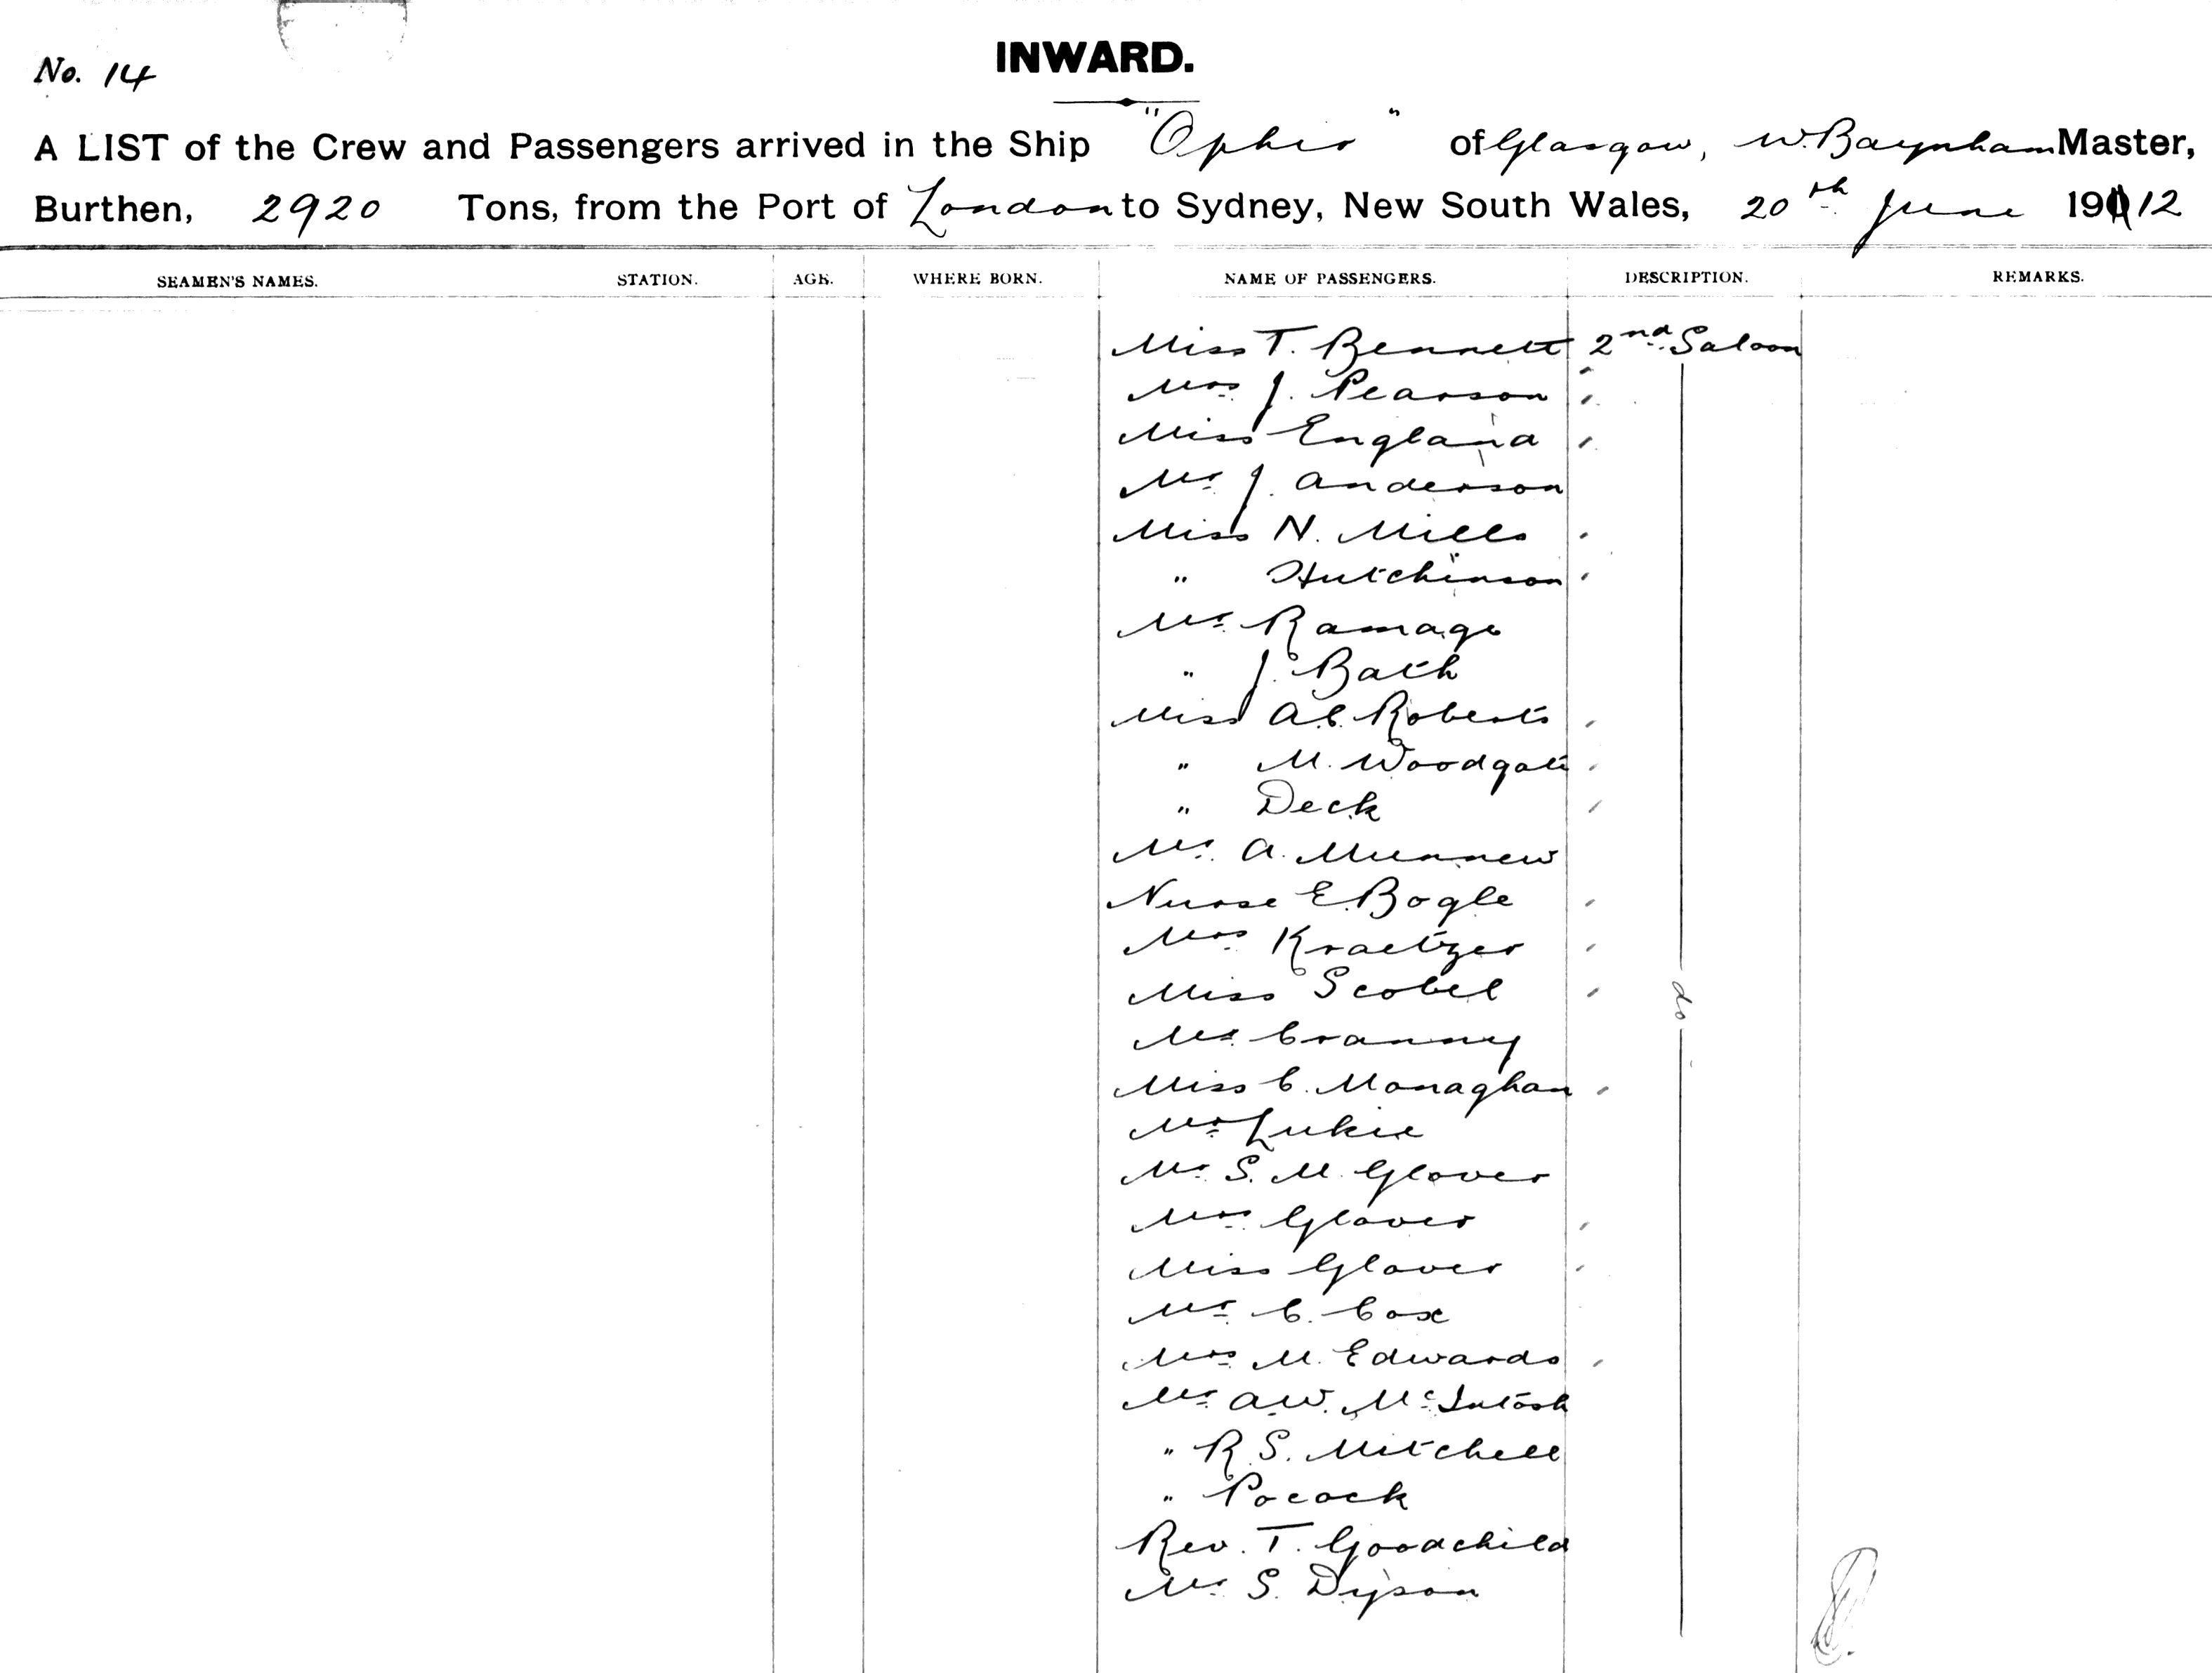 No. 14
INWARD.
A LIST of the Crew and Passengers arrived in the Ship "Ophir" of Glasgow, W. Baynham Master,
Burthen, 2920 Tons, from the Port of London to Sydney, New South Wales, 20th June 1912
SEAMEN'S NAMES. STATION. AGE. WHERE BORN. NAME OF PASSENGERS. DESCRIPTION. REMARKS.
Miss T. Bennett 2nd Saloon
Mrs J. Pearson
Miss England
Mr J. Anderson
Miss N. Mills
" Hutchinson
Mr Ramage
" J. Bath
Miss A.C. Roberts
" M. Woodgate
" Deck
Mr. A. Munnew
Nurse E. Bogle
Mrs Kraetzer
Miss Scobel
do
Mr Cranny
Miss C. Monaghan
Mr Lukie
Mr. S. M. Glover
Mrs Glover
Miss Glover
Mr C. Cox
Mrs M. Edwards
Mr A.W. McIntosh
" R. S. Mitchell
" Pocock
Rev. T. Goodchild
Mr S. Dyson